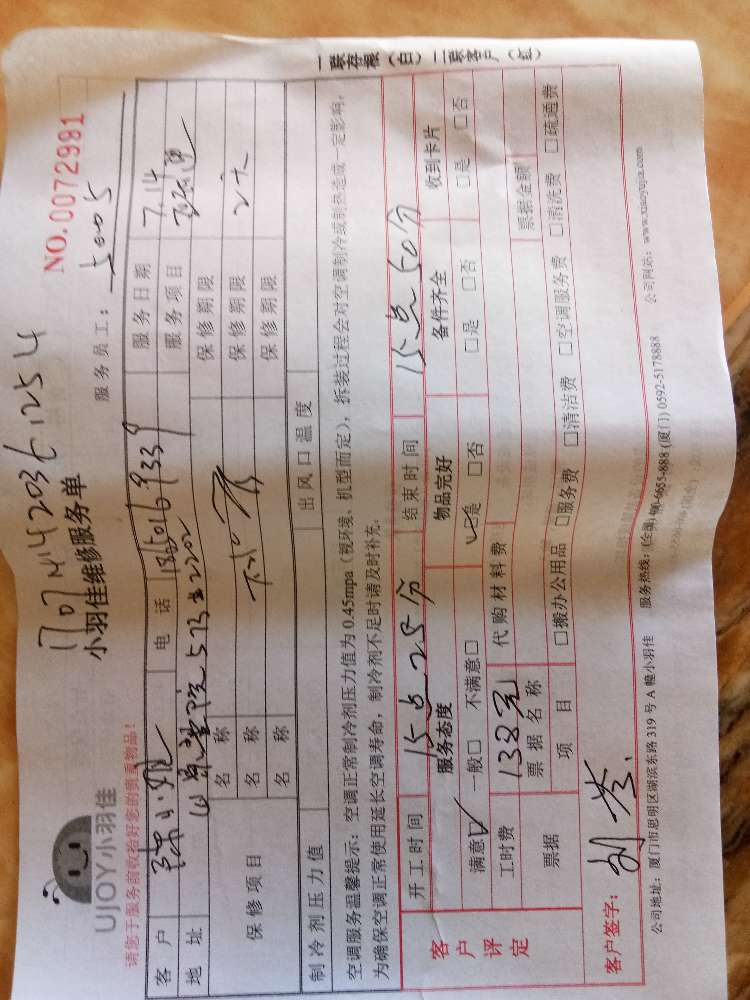 一联存根（白）二联客户（红）
NO.0072991
UJOY小羽佳
小羽佳维修服务单
服务员工：5005
请您于服务前收拾好您的贵重物品！
客户 电话 服务日期 7.14
地址 服务项目
保修项目 名称 保修期限
名称 保修期限
名称 保修期限
制冷剂压力值 出风口温度
空调服务温馨提示：空调正常制冷剂压力值为0.45mpa（视环境、机型而定），拆装过程会对空调制冷或制热造成一定影响，
为确保空调正常使用延长空调寿命，制冷剂不足时请及时补充。
开工时间 15点25分 结束时间 15点50分
客户评定
服务态度 物品完好 备件齐全 收到卡片
满意☑ 一般□ 不满意□ ☑是 □否 □是 □否 □是 □否
工时费 138元 代购材料费
票据 票据名称 票据金额
项目 □搬办公用品 □服务费 □清洁费 □空调服务费 □清洗费 □疏通费
客户签字：
公司地址：厦门市思明区湖滨东路319号A幢小羽佳 服务热线：(全国)400-6655-888 (厦门) 0592-5178888 公司网站：www.xiaoyujia.com